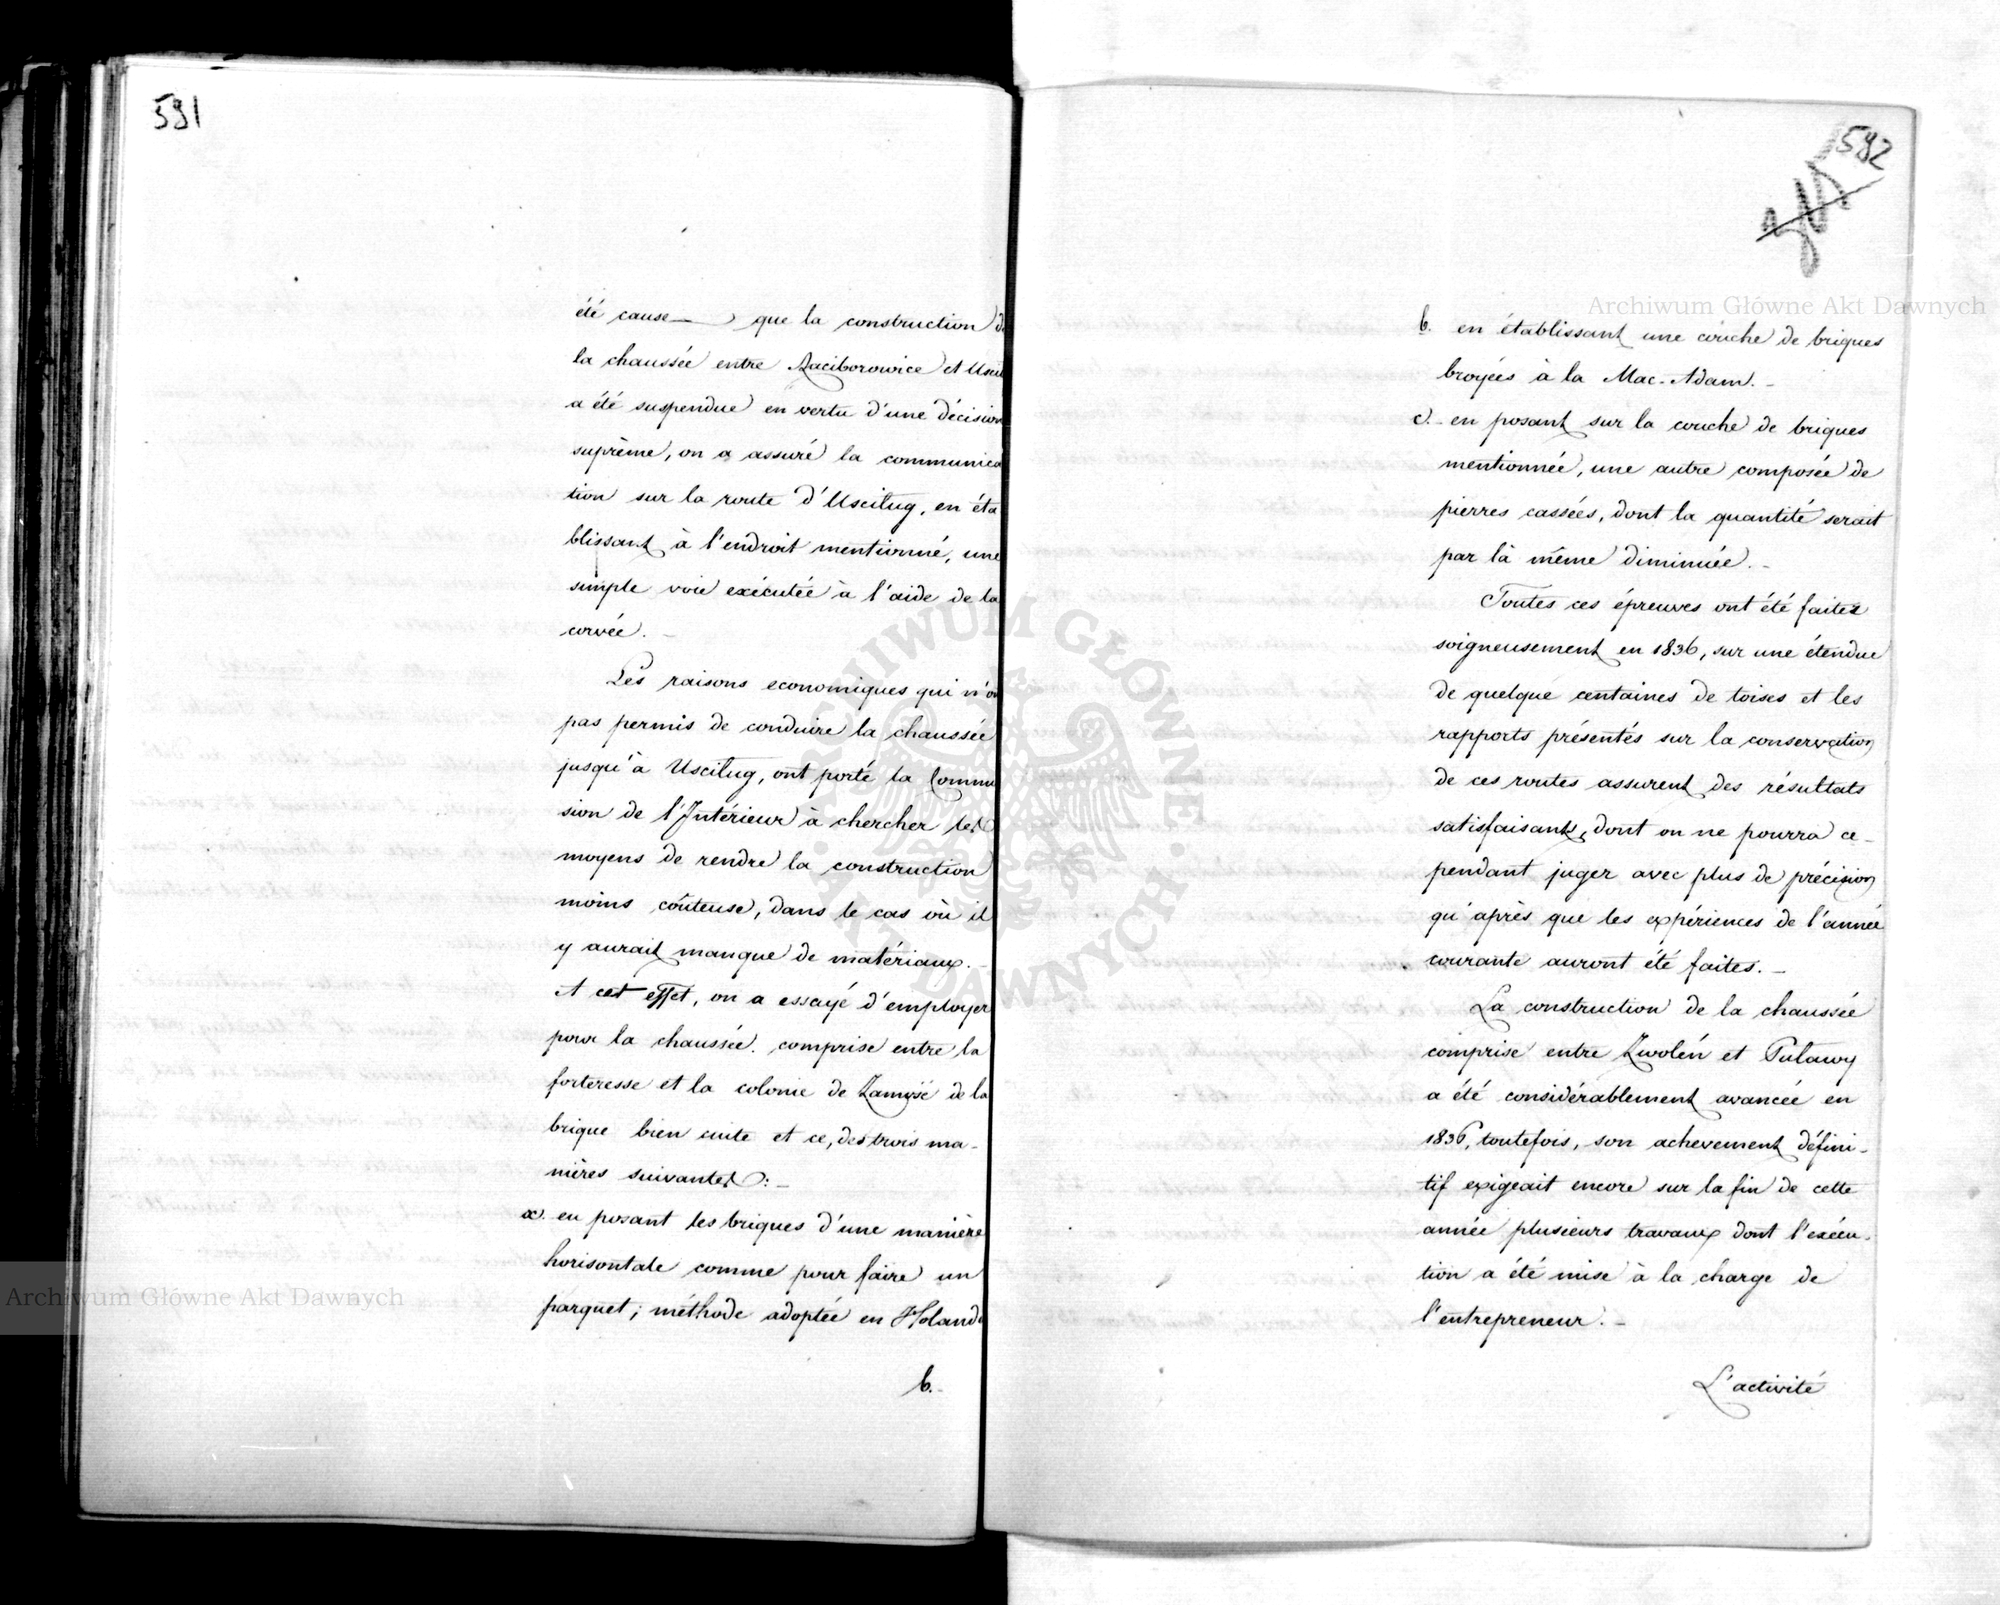 591
été cause que la construction d
la chaussée entre Raciborowice et Uscil
a été suspendue en vertu d'une décision
suprême, on a assuré la communica
tion sur la route d'Uscilug, en éta
blissant à l'endroit mentionné, une
simple voie exécutée à l'aide de la
corvée. _
Les raisons economiques qui n'on
pas permis de conduire la chaussée
jusqu'à Uscilug, ont porté la Commi
sion de l'Intérieur à chercher les
moyens de rendre la construction
moins côuteuse, dans le cas où il
y aurait manque de matériaux. _
A cet effet, on a essayé d'employer
pour la chaussée. comprise entre la
forteresse et la colonie de Zamość de la
brique bien cuite et ce, des trois ma-
nières suivantes: _
a. en posant les briques d'une manière
horisontale comme pour faire un
parquet; méthode adoptée en Holand
b.
592
b. en établissant une couche de briques
broyées à la Mac-Adam. _
c. en posant sur la couche de briques
mentionnée, une autre composée de
pierres cassées, dont la quantité serait
par là même diminuée. _
Toutes ces épreuves ont été faites
soigneusement en 1836, sur une étendue
de quelque centaines de toises et les
rapports présentés sur la conservation
de ces routes assurent des résultats
satisfaisants, dont on ne pourra ce-
pendant juger avec plus de précision
qu'après que les expériences de l'année
courante auront été faites. _
La construction de la chaussée
comprise entre Zwoleń et Pulawy
a été considérablement avancée en
1836, toutefois, son achevement défini-
tif exigeait encore sur la fin de cette
année plusieurs travaux dont l'exécu-
tion a été mise à la charge de
l'entrepreneur. _
L'activité
Archiwum Główne Akt Dawnych
Archiwum Główne Akt Dawnych
ARCHIWUM GŁÓWNE AKT DAWNYCH